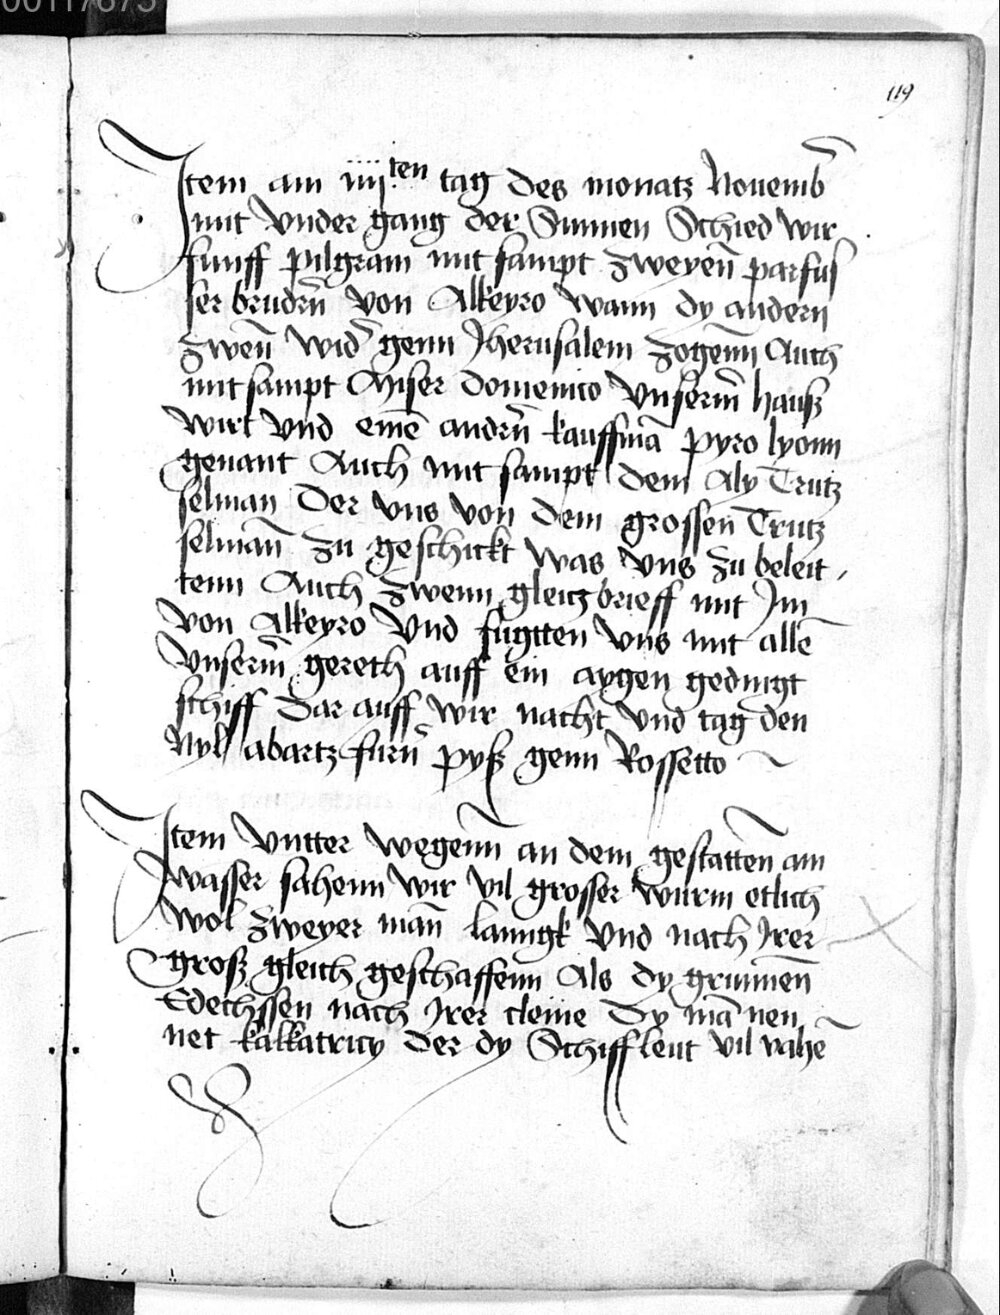 00117873
119
Item am iiijten tag des monatz Nouemb
mit Vnder gang der Sunnen Schied Wir
funff pilgram mit sampt zweyen parfus
ser brudrn Von Alkeyro Wann dy andern
zwen Wid genn Jherusalem zogenn Auch
mit sampt Miser domenico Vnserm hauß
Wirt Vnd eine andrn kauffma pyro lyonn
genant Auch mit sampt dem Aly Trutz
selman Der Vns Von dem grossen Trutz
selman zu geschickt Was Vns zu beleit
tenn Auch zwenn gleitzbrieff mit Im
Von Alkeyro Vnd fugtten Vns mit alle
Vnserm gereth auff ein aygen gedingt
schiff Dar auff Wir nacht Vnd tag den
Nyl abartz furn pyß genn Rossetto
Item Vntter Wegenn an dem gestatten am
Wasser sahenn Wir Vil grosser Wurm etlich
Wol zweyer man lanngk Vnd nach Irer
groß gleich geschaffenn Als dy grunnen
Edechssen nach Irer cleine Dy ma nen
net kalkatricy Der dy Schiffleut Vil nahe